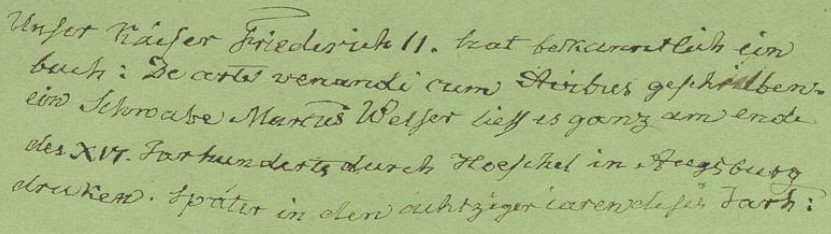 Unser Kaiser Friederich II. hat bekanntlich ein
buch: De arte venandi cum Avibus geschrieben.
ein Schwabe Marcus Welser liess es ganz am ende
des XVI. Jarhunderts durch Hoeschel in Augsburg
druken. Später in den achtziger iaren dises Jarh: